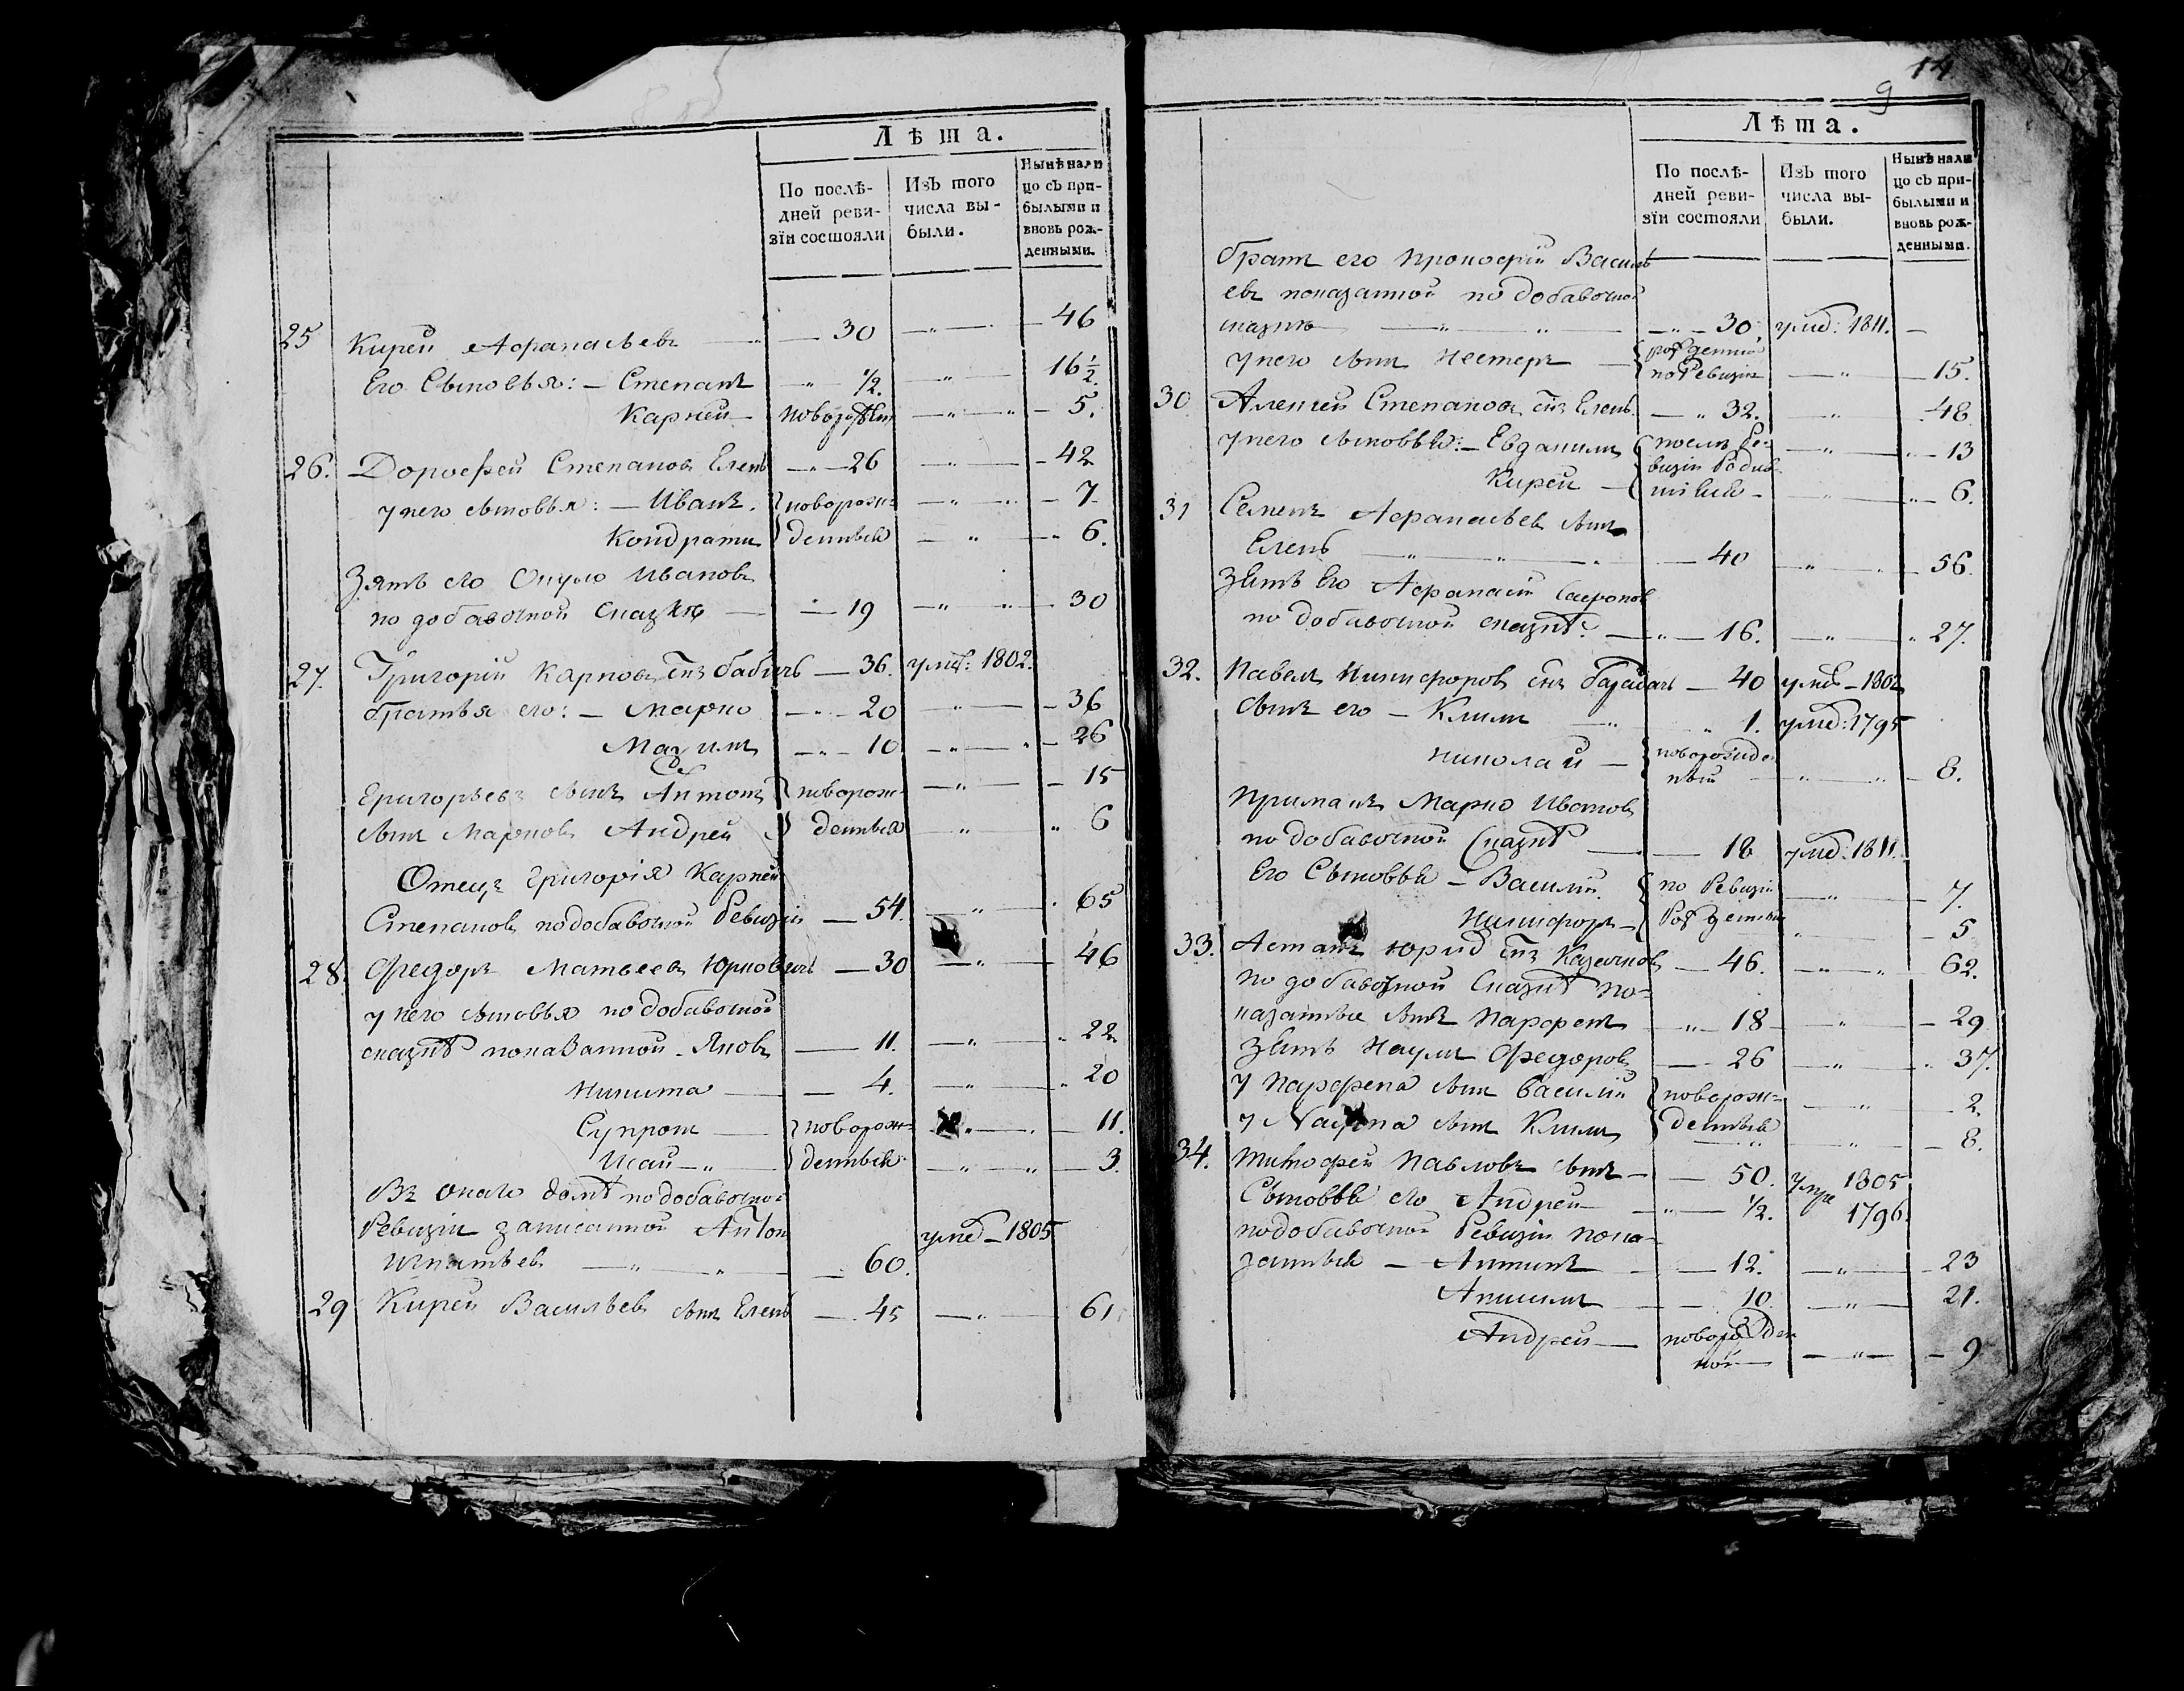 Лѣта.
По послѣ-
дней реви-
зіи состояли
Изъ того
числа вы-
были.
Нынѣ нали
цо съ при-
былыми и
вновь рож-
денными.
25 Кирей Афанасьевъ — 30 —„— 46
Его Сыновья: — Степанъ —„ 1/2. —„— 16 1/2.
Карней — —„—„— 5.
26. Дорофей Степановъ Елень —„— 26 —„— 42
у него сыновья: — Иванъ. } новорож= —„— 7
Кондратъ } денныя —„— 6.
Зять его Ивановъ
по добавочной сказкѣ — — 19 —„— 30
27. Григорій Карповъ сынъ Бабичъ — 36. умеръ: 1802.
братья его: — Марко —„— 20 —„— 36
Мазимъ —„— 10 —„— 26
Григорьевъ сынъ Антонъ } новорож= —„— 15
сынъ Марковъ Андрей } денныя —„— „ 6
Отецъ Григорія Карпей
Степановъ по добавочной Ревизіи — 54. —„— 65
28. Федоръ Матвеевъ Юрковичъ — 30 —„— 46
у него сыновья по добавочной
сказкѣ показанной - Яковъ — 11. —„— „ 22.
Никита — — 4. —„— „ 20
Супронъ — } новорож= „—.— 11.
Исай —„ — } денныя —„—„— 3.
Въ онаго домѣ по добавочной
Ревизіи записанной Антонъ умер — 1805
Игнатьевъ —„—„— — 60.
29 Кирей Васильевъ сынъ Елень — 45 —„— 61
14
9
Лѣта.
По послѣ-
дней реви-
зіи состояли
Изъ того
числа вы-
были.
Нынѣ нали
цо съ при-
былыми и
вновь рож-
денными.
братъ его Прокофій Василь
евъ показанной по добавочной
сказкѣ —„—„— —„— 30 умер: 1811. —
у него сынъ Нестеръ — { рожденный
по Ревизіи —„— 15.
30 Алексей Степановъ сынъ Елень. —„ 32. —„— 48
у него сыновья: — Евдакимъ { послѣ Ре-
визіи родив- —„— 13
Кирей — { шіися — —„— 6.
31 Семенъ Афанасьевъ сынъ
Елень —„—„— — 40 —„— 56.
Зять Его Афанасій Сафоновъ
по добавочной сказкѣ. —„— 16. —„— „ 27.
32. Павелъ Никифоровъ сынъ — 40 умер — 1802
сынъ его — Климъ —„— „ 1. умер: 1795
Николай — { новорожден
ный —„—„— 8.
Примакъ Марко Ивановъ
по добавочной Сказкѣ — — 18 умер: 1811.
Его Сыновья — Василій { по Ревизіи —„— 7.
Никифоръ — { Рожденныя „— 5
33. Астапъ Юрид сынъ Казачковъ — 46. —„—„ 62.
по добавочной Сказкѣ по=
казанные сынъ Парфенъ —„— 18 —„— 29
Зять Наумъ Федоровъ — 26 —„— „ 37.
у Парфена сынъ Василій } новорож= —„— 2.
у Наума сынъ Климъ } денныя —„— 8.
34. Тимофей Павловъ сынъ — — 50. умре 1805
Сыновья его Андрей — —„— 1/2. 1796.
по добавочной Ревизіи пока-
занныя — Антипъ — — 12. —„— 23
Анисимъ — — 10. —„— 21.
Андрей — новорожден
ной — —„— 9